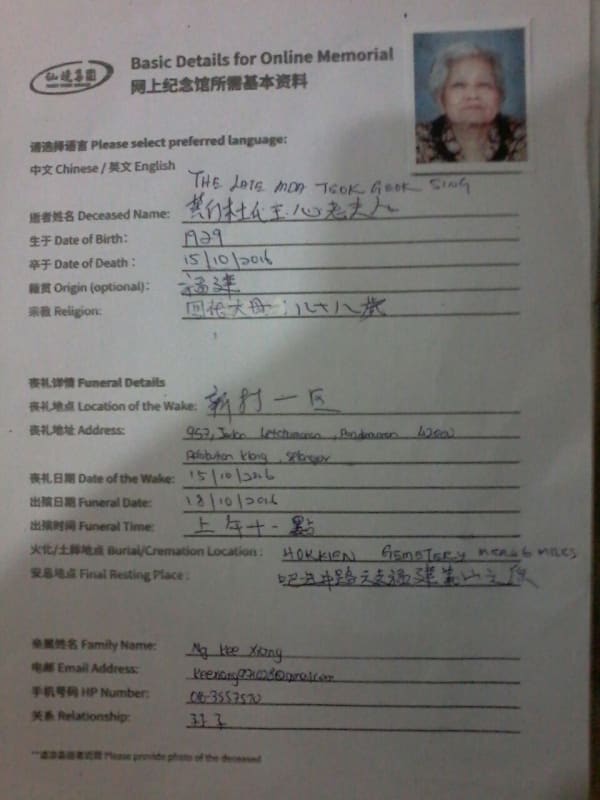 仙境集團
Basic Details for Online Memorial
网上纪念馆所需基本资料
请选择语言 Please select preferred language:
中文 Chinese / 英文 English
THE LATE MDM TEOK GEOK SING
逝者姓名 Deceased Name:
生于 Date of Birth: 1929
卒于 Date of Death : 15/10/2016
籍贯 Origin (optional): 福建
宗教 Religion: 八十八歲
丧礼详情 Funeral Details
丧礼地点 Location of the Wake: 新村一区
丧礼地址 Address: 957, Jalan Letchumanan, Pandamaran 42000
Pelabuhan Klang, Selangor
丧礼日期 Date of the Wake: 15/10/2016
出殡日期 Funeral Date: 18/10/2016
出殡时间 Funeral Time: 上午十一點
火化/土葬地点 Burial/Cremation Location : HOKKIEN CEMETERY MERU 6 MILES
安息地点 Final Resting Place :
亲属姓名 Family Name: Ng Kee Xiang
电邮 Email Address:
手机号码 HP Number:
关系 Relationship:
Please provide photo of the deceased